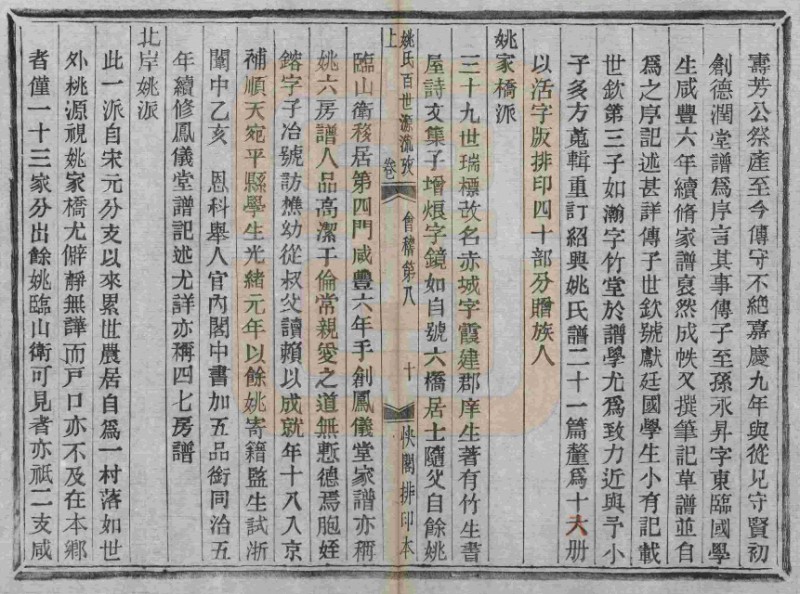 壽芳公祭產至今傳守不絕嘉慶九年與從兄守賢初
創德潤堂譜爲序言其事傳子至孫永昇字東臨國學
生咸豐六年續脩家譜裒然成帙又撰筆記草譜並自
爲之序記述甚詳傳子世欽號獻廷國學生小有記載
世欽第三子如瀚字竹堂於譜學尤爲致力近與予小
子多方蒐輯重訂紹興姚氏譜二十一篇釐爲十六册
以活字版排印四十部分贈族人
姚家橋派
三十九世瑞標改名赤城字霞建郡庠生著有竹生書
屋詩文集子增烺字鏡如自號六橋居士隨父自餘姚
姚氏百世源流攷 卷上 會稽第八 十 快閣排印本
臨山衛移居第四門咸豐六年手創鳳儀堂家譜亦稱
姚六房譜人品高潔于倫常親愛之道無慙德焉胞姪
鎔字子冶號訪樵幼從叔父讀賴以成就年十八入京
補順天宛平縣學生光緒元年以餘姚寄籍監生試浙
闈中乙亥 恩科舉人官內閣中書加五品銜同治五
年續修鳳儀堂譜記述尤詳亦稱四七房譜
北岸姚派
此一派自宋元分支以來累世農居自爲一村落如世
外桃源視姚家橋尤僻靜無譁而戸口亦不及在本鄉
者僅一十三家分出餘姚臨山衛可見者亦祇二支咸